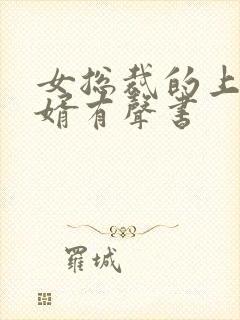 女总裁的上
婿有聲書
羅城